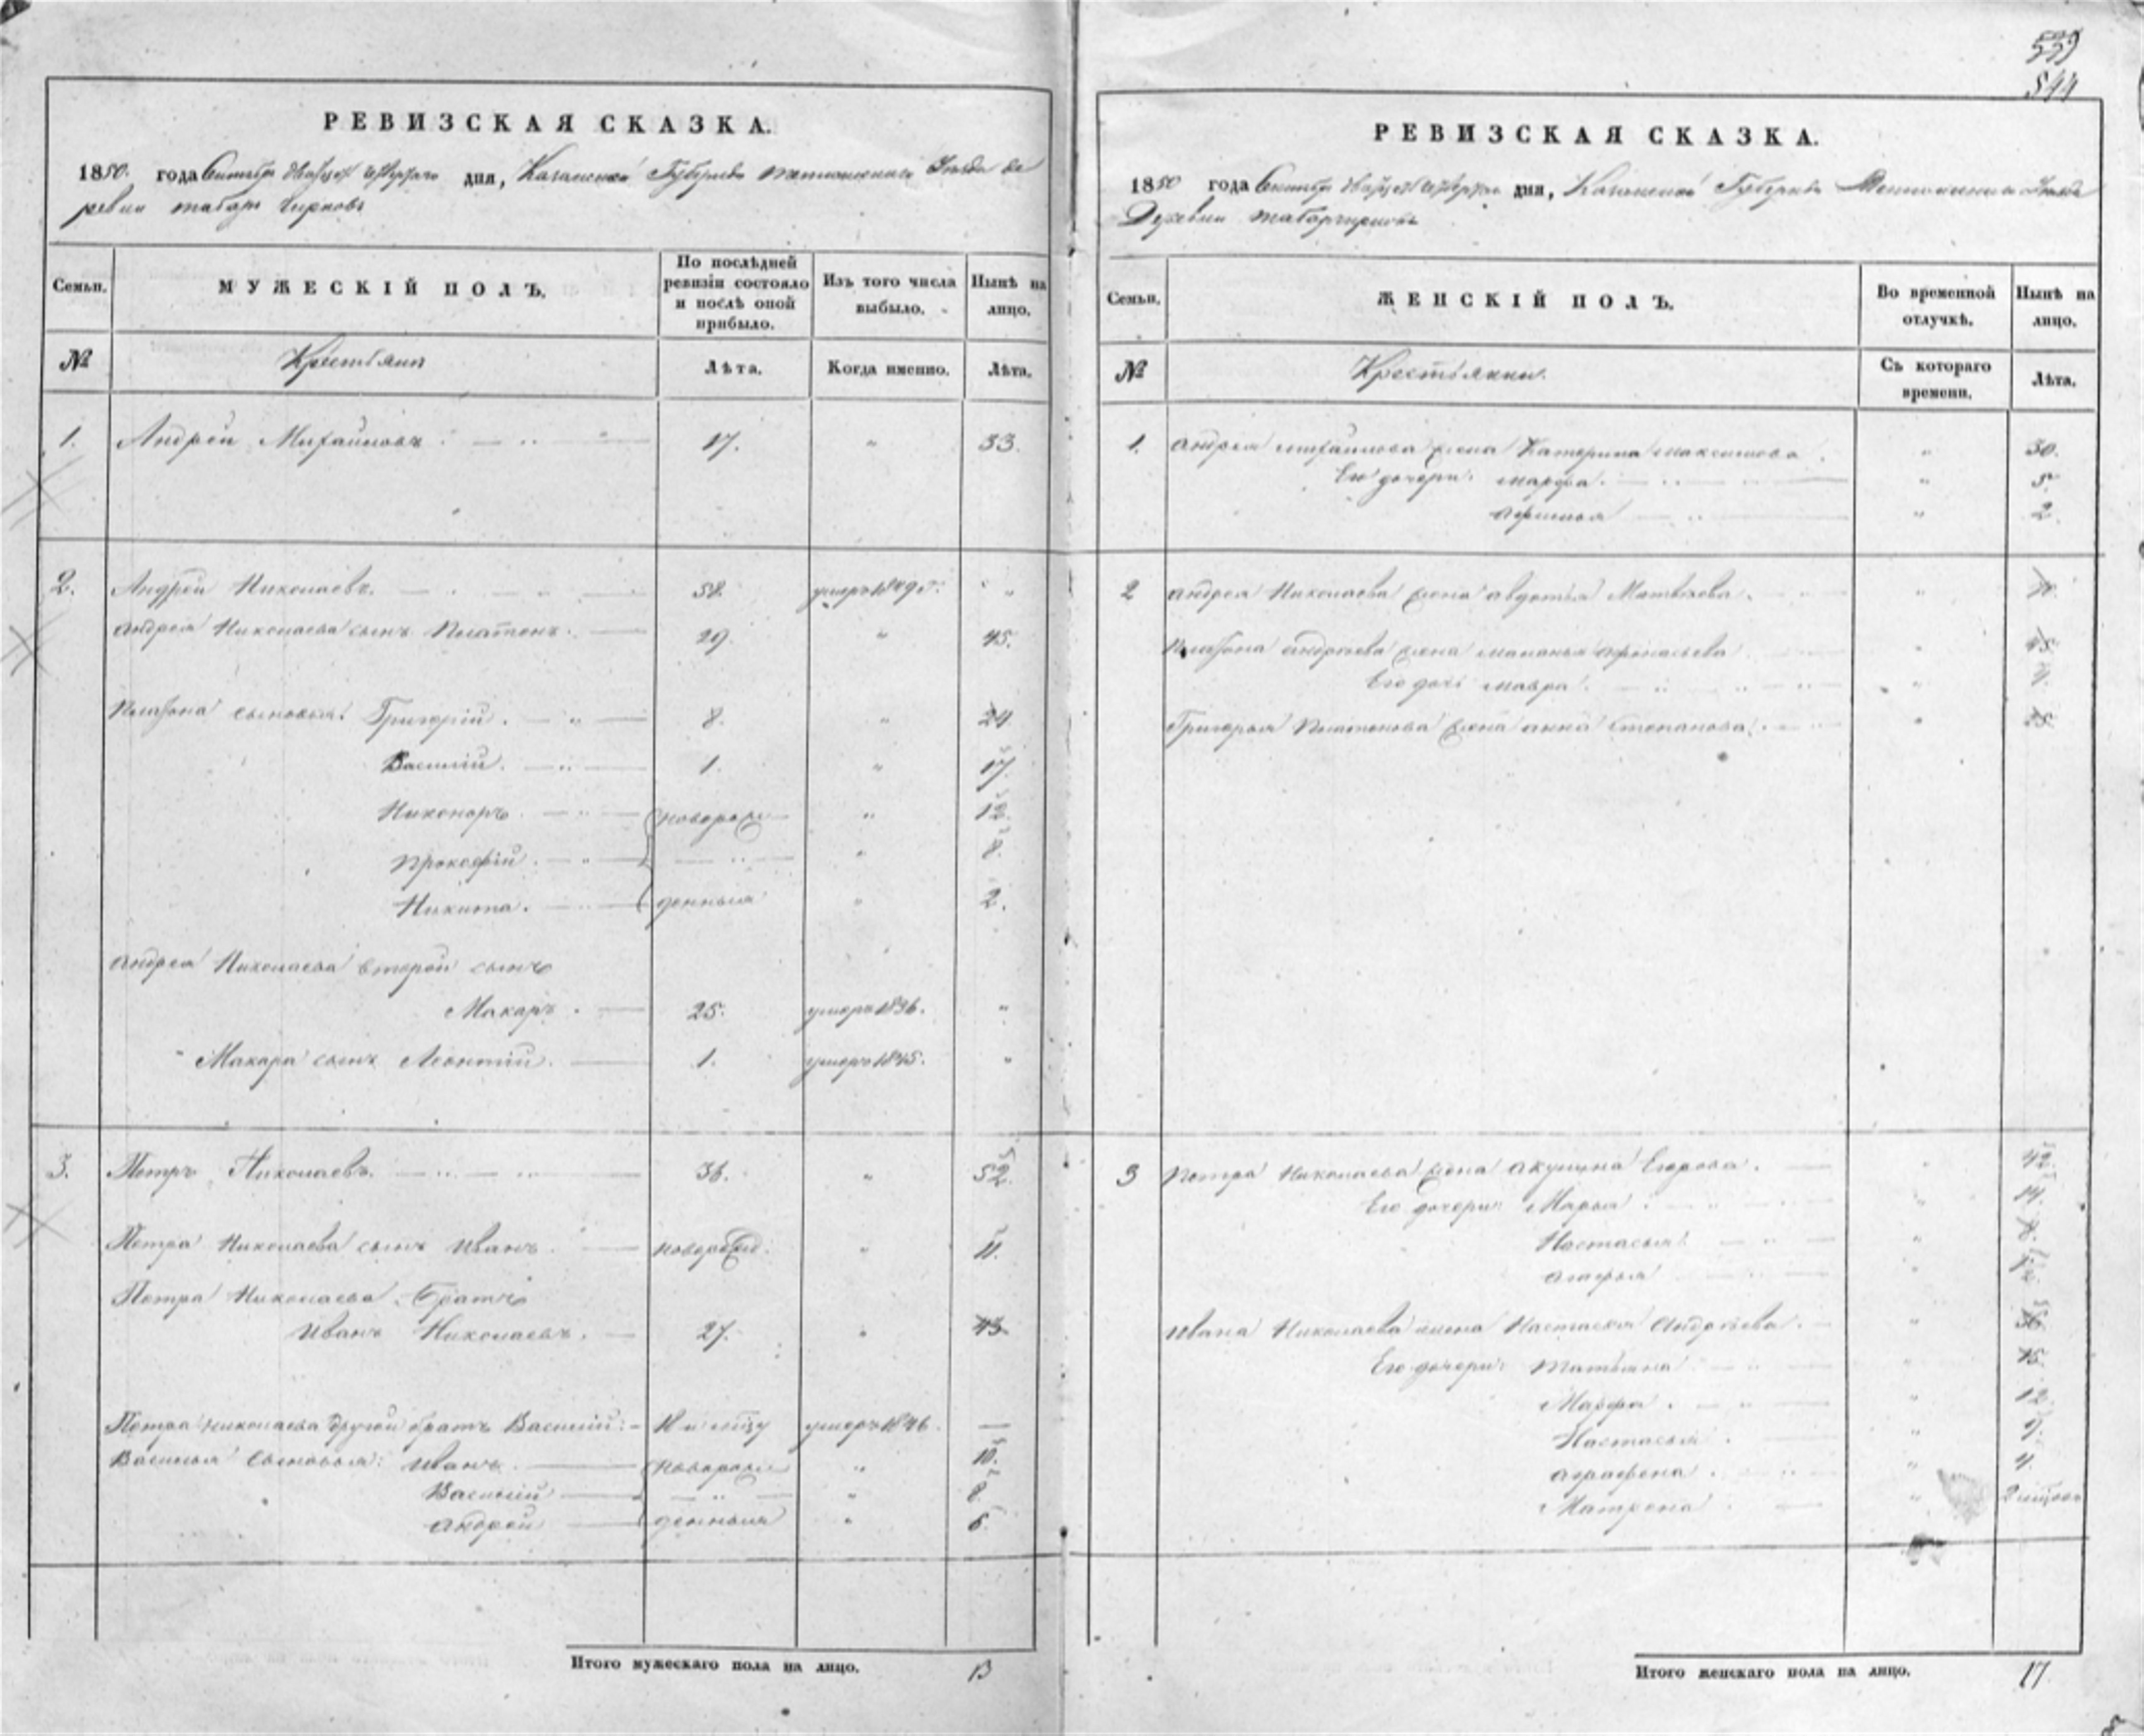 555
544
РЕВИЗСКАЯ СКАЗКА.
1850. года Сентября двадцать четвертаго дня, Казанской Губернии Тетюшскаго Уезда де
ревни
Семьи. МУЖЕСКІЙ ПОЛЪ. По послѣдней ревизіи состояло и послѣ оной прибыло. Изъ того числа выбыло. Нынѣ на лицо.
№ Крестьяне Лѣта. Когда именно. Лѣта.
1. Андрей Михайловъ 17. " 33.
2. Андрей Николаевъ. 58. умеръ 1849 г. "
Андрея Николаева сынъ Платонъ. 29. " 45.
Платона сыновья: Григорій. 8. " 24.
Василій. 1. " 17.
Никоноръ. новорож " 12.
Прокофій. " 8.
Никита. денныя " 2.
Андрея Николаева второй сынъ
Макаръ. 25. умеръ 1836. "
Макара сынъ Леонтій. 1. умеръ 1845. "
3. Петръ Николаевъ. 36. " 52.
Петра Николаева сынъ Иванъ. новорожд. " 11.
Петра Николаева братъ
Иванъ Николаевъ. 27. " 43.
Петра Николаева другой братъ Василій: умеръ 1846. —
Василья сыновья: Иванъ. новорож " 10.
Василій " 8.
Андрей денныя " 6.
Итого мужескаго пола на лицо. 13
РЕВИЗСКАЯ СКАЗКА.
1850 года Сентября двадцать четвертаго дня, Казанской Губернии Тетюшскаго Уезда
Деревни
Семьи. ЖЕНСКІЙ ПОЛЪ. Во временной отлучкѣ. Нынѣ на лицо.
№ Крестьянки. Съ котораго времени. Лѣта.
1. Андрея Михайлова жена Катерина Максимова. " 30.
Его дочери: Марфа. " 5.
Афимья " 2.
2 Андрея Николаева жена Авдотья Матвѣева. " 70.
Платона Андреева жена Маланья Афонасьева " 45.
Его дочь Мавра. "
Григорья Платонова жена Анна Степанова. " 25.
3 Петра Николаева жена Акулина Егорова. " 42.
Его дочери: Марья. " 14.
Настасья " 8.
Агафья "
Ивана Николаева жена Настасья Андреева. " 36.
Его дочери: Татьяна " 15.
Марфа. " 12.
Настасья. " 9.
Аграфена. " 4.
Матрена. "
Итого женскаго пола на лицо. 17